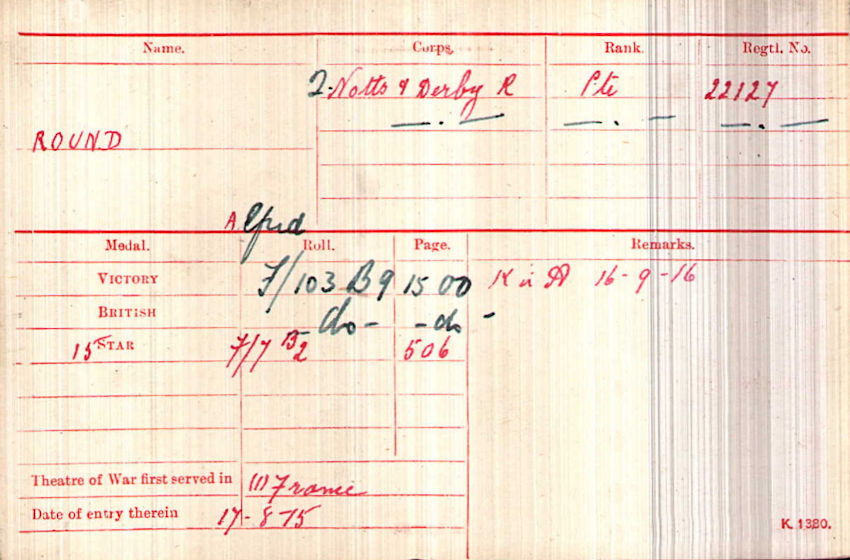 Name. Corps. Rank. Regtl. No.
2. Notts & Derby R Pte 22127
— . — — . — — . —
ROUND
Alfred
Medal. Roll. Page. Remarks.
VICTORY F/103 B9 1500 K in A 16-9-16
BRITISH - do - - do -
15 STAR F/7 B2 506
Theatre of War first served in (1) France
Date of entry therein 17-8-15
K. 1380.